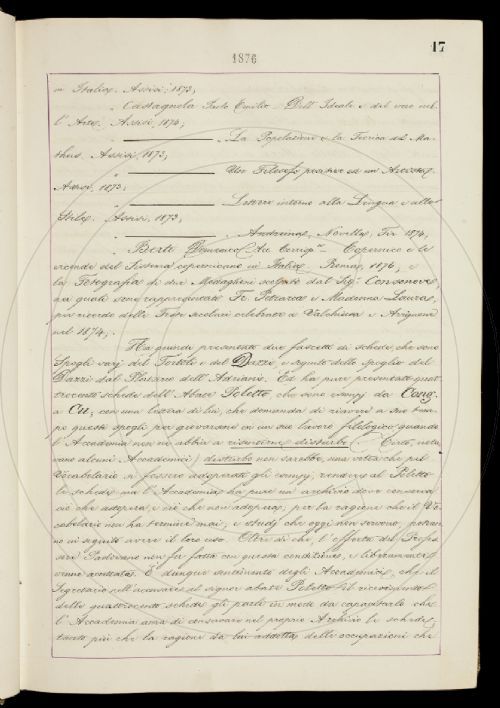 17
1876
in Italia. Assisi, 1873;
" Castagnola Paolo Emilio. Dell'Ideale e del vero nell'
Arte. Assisi, 1874;
" La Popolazione e la Teorica del Mal-
thus. Assisi, 1873;
" Un Filosofo
Assisi, 1873;
" Lettere intorno alla Lingua e allo
Stile. Assisi, 1873;
" Novella, 1874;
" Berti Domenico Acc. Corrisp.te Copernico e le
vicende del Sistema copernicano in Italia. Roma, 1876; e
la Fotografia di due Medaglioni scolpiti dal Sig. Consonove,
nei quali sono rappresentati Fr. Petrarca e Madonna Laura,
per ricordo delle Feste secolari celebrate a Valchiusa e Avignone
nel 1874;
Ha quindi presentato due fascetti di schede, che sono
Spogli varj del Tortoli e del Dazzi, e seguito dello spoglio del
Dazzi dal Plutarco dell'Adriani. Ed ha pure presentato quat-
trocento schede dell'Abate Poletto, che sono esempj da Cong.
a Cu, con una lettera di lui, che domanda di riavere a suo tem-
po questi spogli per giovarsene in un suo lavoro filologico quando
l'Accademia non ne abbia a risentire disturbo. Certo, nota-
vano alcuni Accademici, disturbo non sarebbe, una volta che pel
Vocabolario si fossero adoprati gli esempj, rendere al Poletto
le schede: ma l'Accademia ha pure un archivio dove conserva
ciò che adopera, e ciò che non adopera, per la ragione che il Vo-
cabolario non ha termine mai, e studj che oggi non servono, potran-
no in seguito avere il loro uso. Oltre di che l'offerta del Profes-
sore Padovano non fu fatta con questa condizione, e liberamente
venne accettata. È dunque sentimento degli Accademici, che il
Segretario nell'accusare al signor abate Poletto il ricevimento
delle quattrocento schede gli parli in modo da capacitarlo che
l'Accademia ama di conservare nel proprio Archivio le schede;
tanto più che la ragione da lui addotta, delle occupazioni che